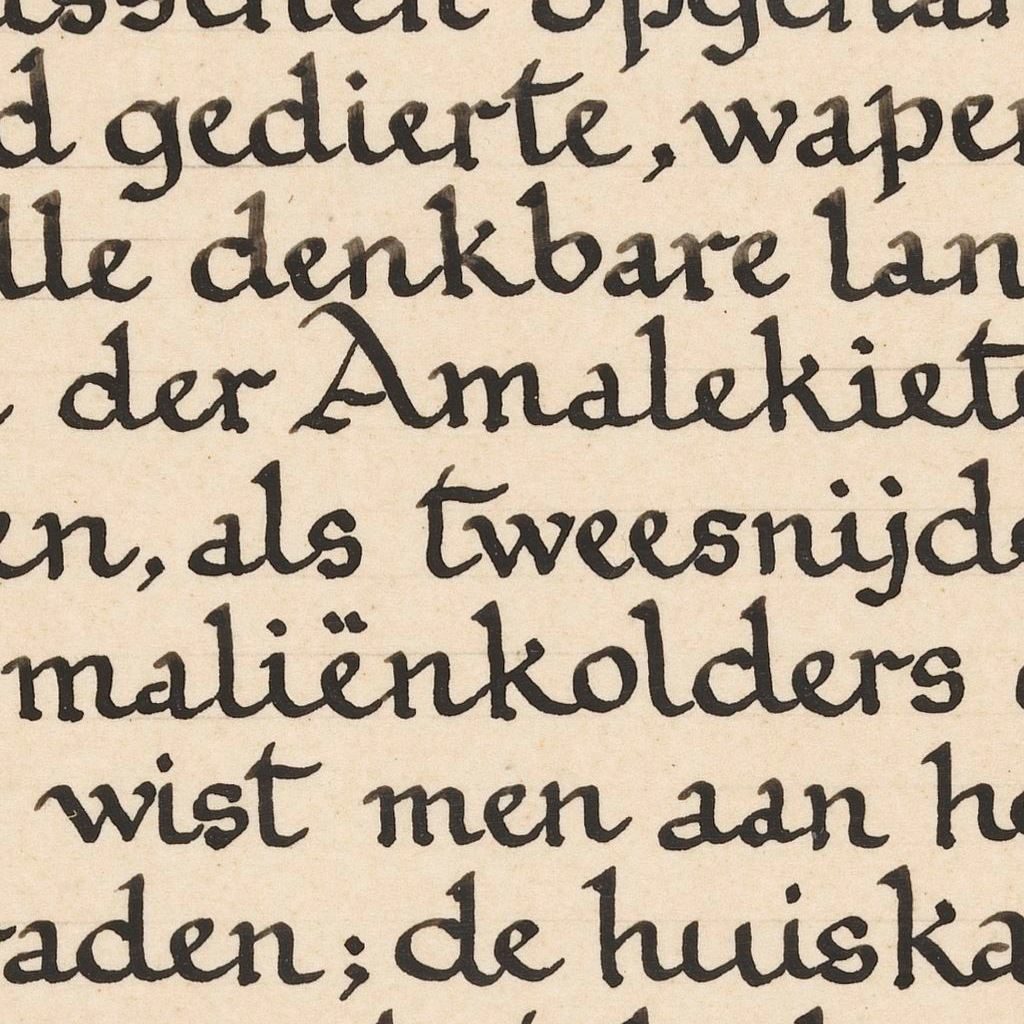 d gedierte, wapen
lle denkbare lan
der Amalekiete
en, als tweesnijde
maliënkolders
wist men aan he
raden; de huiska